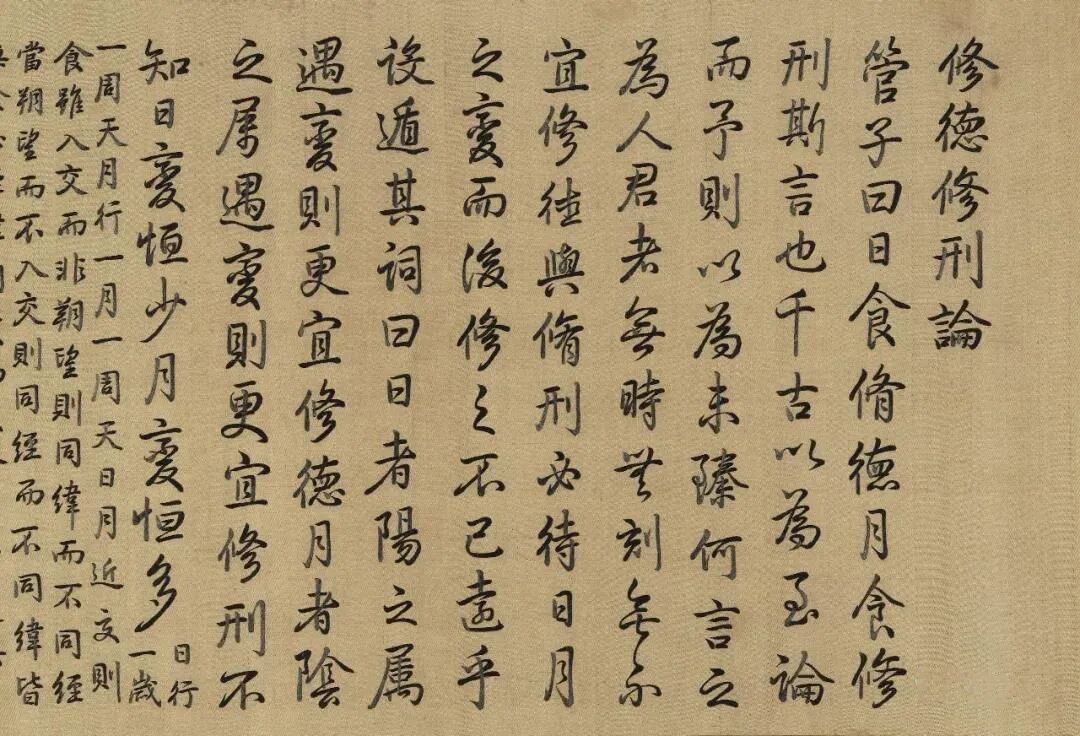 修德修刑論
管子曰日食脩德月食修
刑斯言也千古以為至論
而予則以為未臻何言之
為人君者無時無刻無不
宜修德與脩刑必待日月
之變而後修之不已遠乎
設遁其詞曰日者陽之属
遇變則更宜修德月者陰
之属遇變則更宜修刑不
知日變恒少月變恒多日行
一歲
一周天月行一月一周天日月近交則
食雖入交而非朔望則同緯而不同經
當朔望而不入交則同經而不同緯皆